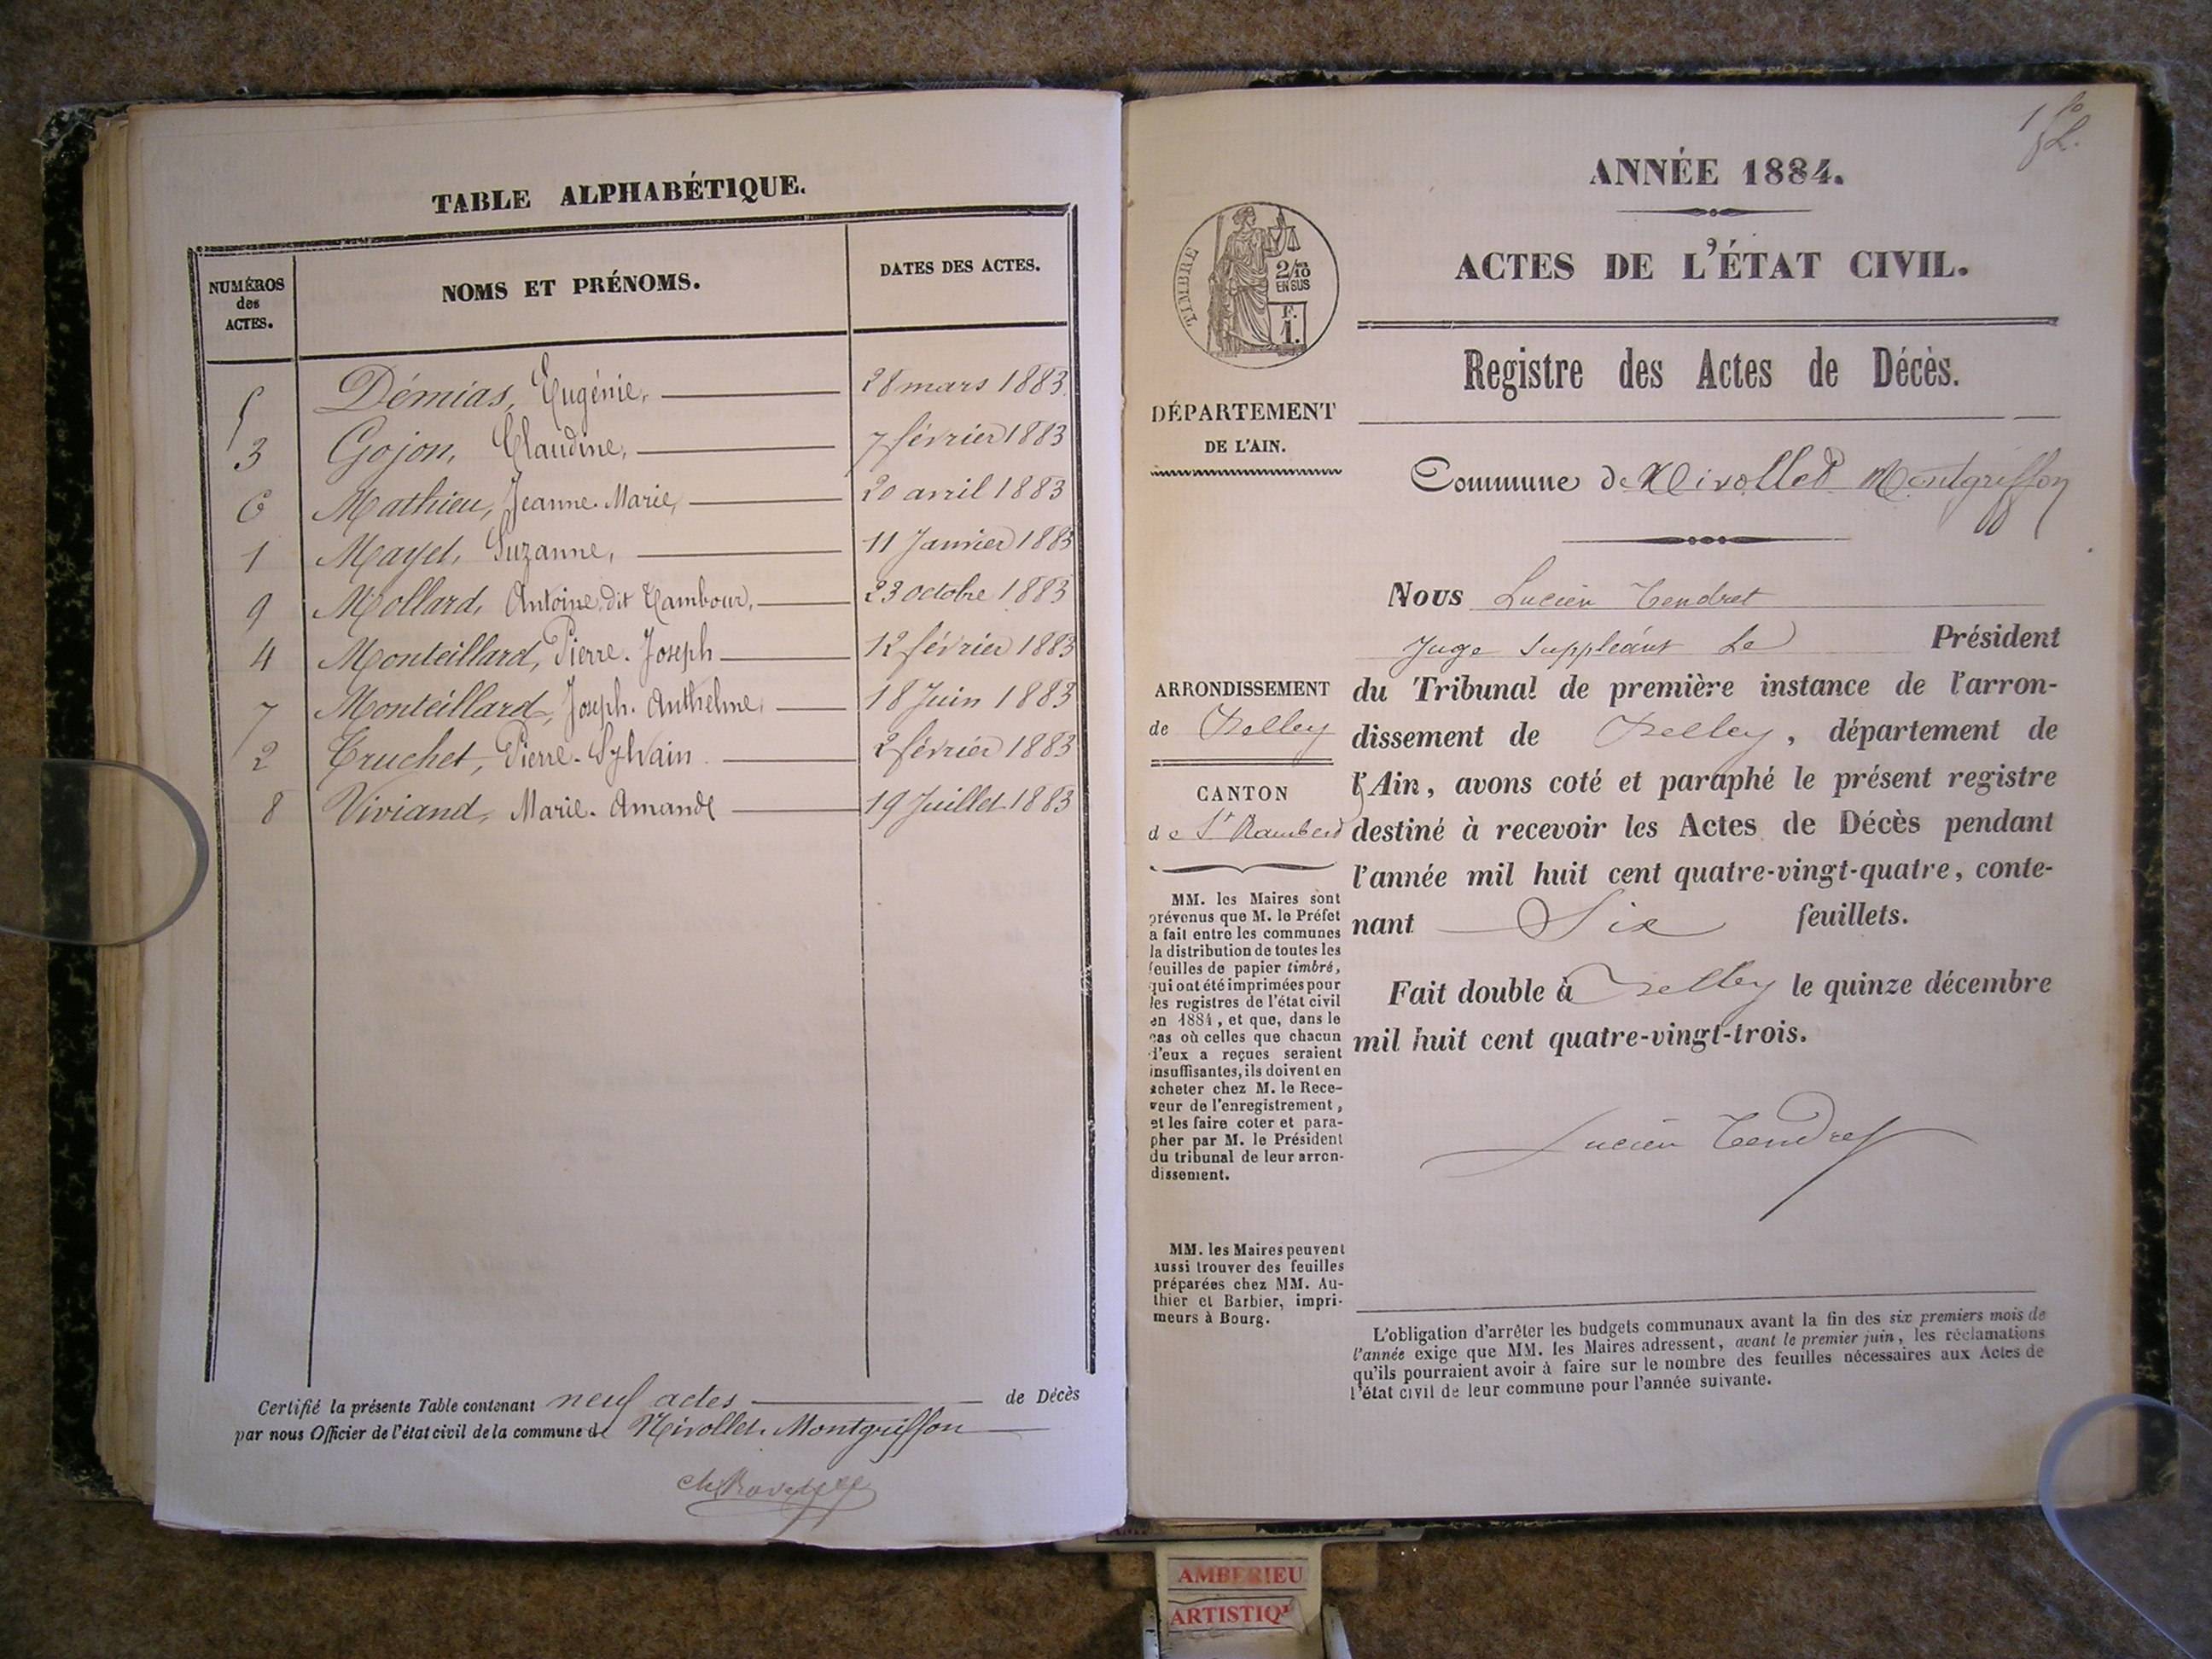 TABLE ALPHABÉTIQUE.
NUMÉROS des ACTES.
NOMS ET PRÉNOMS.
DATES DES ACTES.
5 Démias, Eugénie, 28 mars 1883
3 Gojon, Claudine, 7 février 1883
6 Mathieu, Jeanne-Marie, 20 avril 1883
1 Mayet, Suzanne, 11 Janvier 1883
9 Mollard, Antoine, dit Tambour, 23 octobre 1883
4 Monteillard, Pierre-Joseph 12 février 1883
7 Monteillard, Joseph-Anthelme, 18 Juin 1883
2 Truchet, Pierre-Sylvain 2 février 1883
8 Viviand, Marie-Amande 19 Juillet 1883
Certifié la présente Table contenant neuf actes de Décès
par nous Officier de l'état civil de la commune de Nivollet-Montgriffon
ANNÉE 1884.
ACTES DE L'ÉTAT CIVIL.
TIMBRE
2/10
EN SUS
F.
1.
Registre des Actes de Décès.
DÉPARTEMENT
DE L'AIN.
Commune de Nivollet Montgriffon
Nous Lucien Tendret
Juge Suppléant Le Président
du Tribunal de première instance de l'arron-
dissement de Belley, département de
l'Ain, avons coté et paraphé le présent registre
destiné à recevoir les Actes de Décès pendant
l'année mil huit cent quatre-vingt-quatre, conte-
nant Six feuillets.
Fait double à Belley le quinze décembre
mil huit cent quatre-vingt-trois.
Lucien Tendret
ARRONDISSEMENT
de Belley
CANTON
de St Rambert
MM. les Maires sont
prévenus que M. le Préfet
a fait entre les communes
la distribution de toutes les
feuilles de papier timbré,
qui ont été imprimées pour
les registres de l'état civil
en 1884, et que, dans le
cas où celles que chacun
d'eux a reçues seraient
insuffisantes, ils doivent en
acheter chez M. le Rece-
veur de l'enregistrement,
et les faire coter et para-
pher par M. le Président
du tribunal de leur arron-
dissement.
MM. les Maires peuvent
aussi trouver des feuilles
préparées chez MM. Au-
thier et Barbier, impri-
meurs à Bourg.
L'obligation d'arrêter les budgets communaux avant la fin des six premiers mois de
l'année exige que MM. les Maires adressent, avant le premier juin, les réclamations
qu'ils pourraient avoir à faire sur le nombre des feuilles nécessaires aux Actes de
l'état civil de leur commune pour l'année suivante.
AMBERIEU
ARTISTIQ